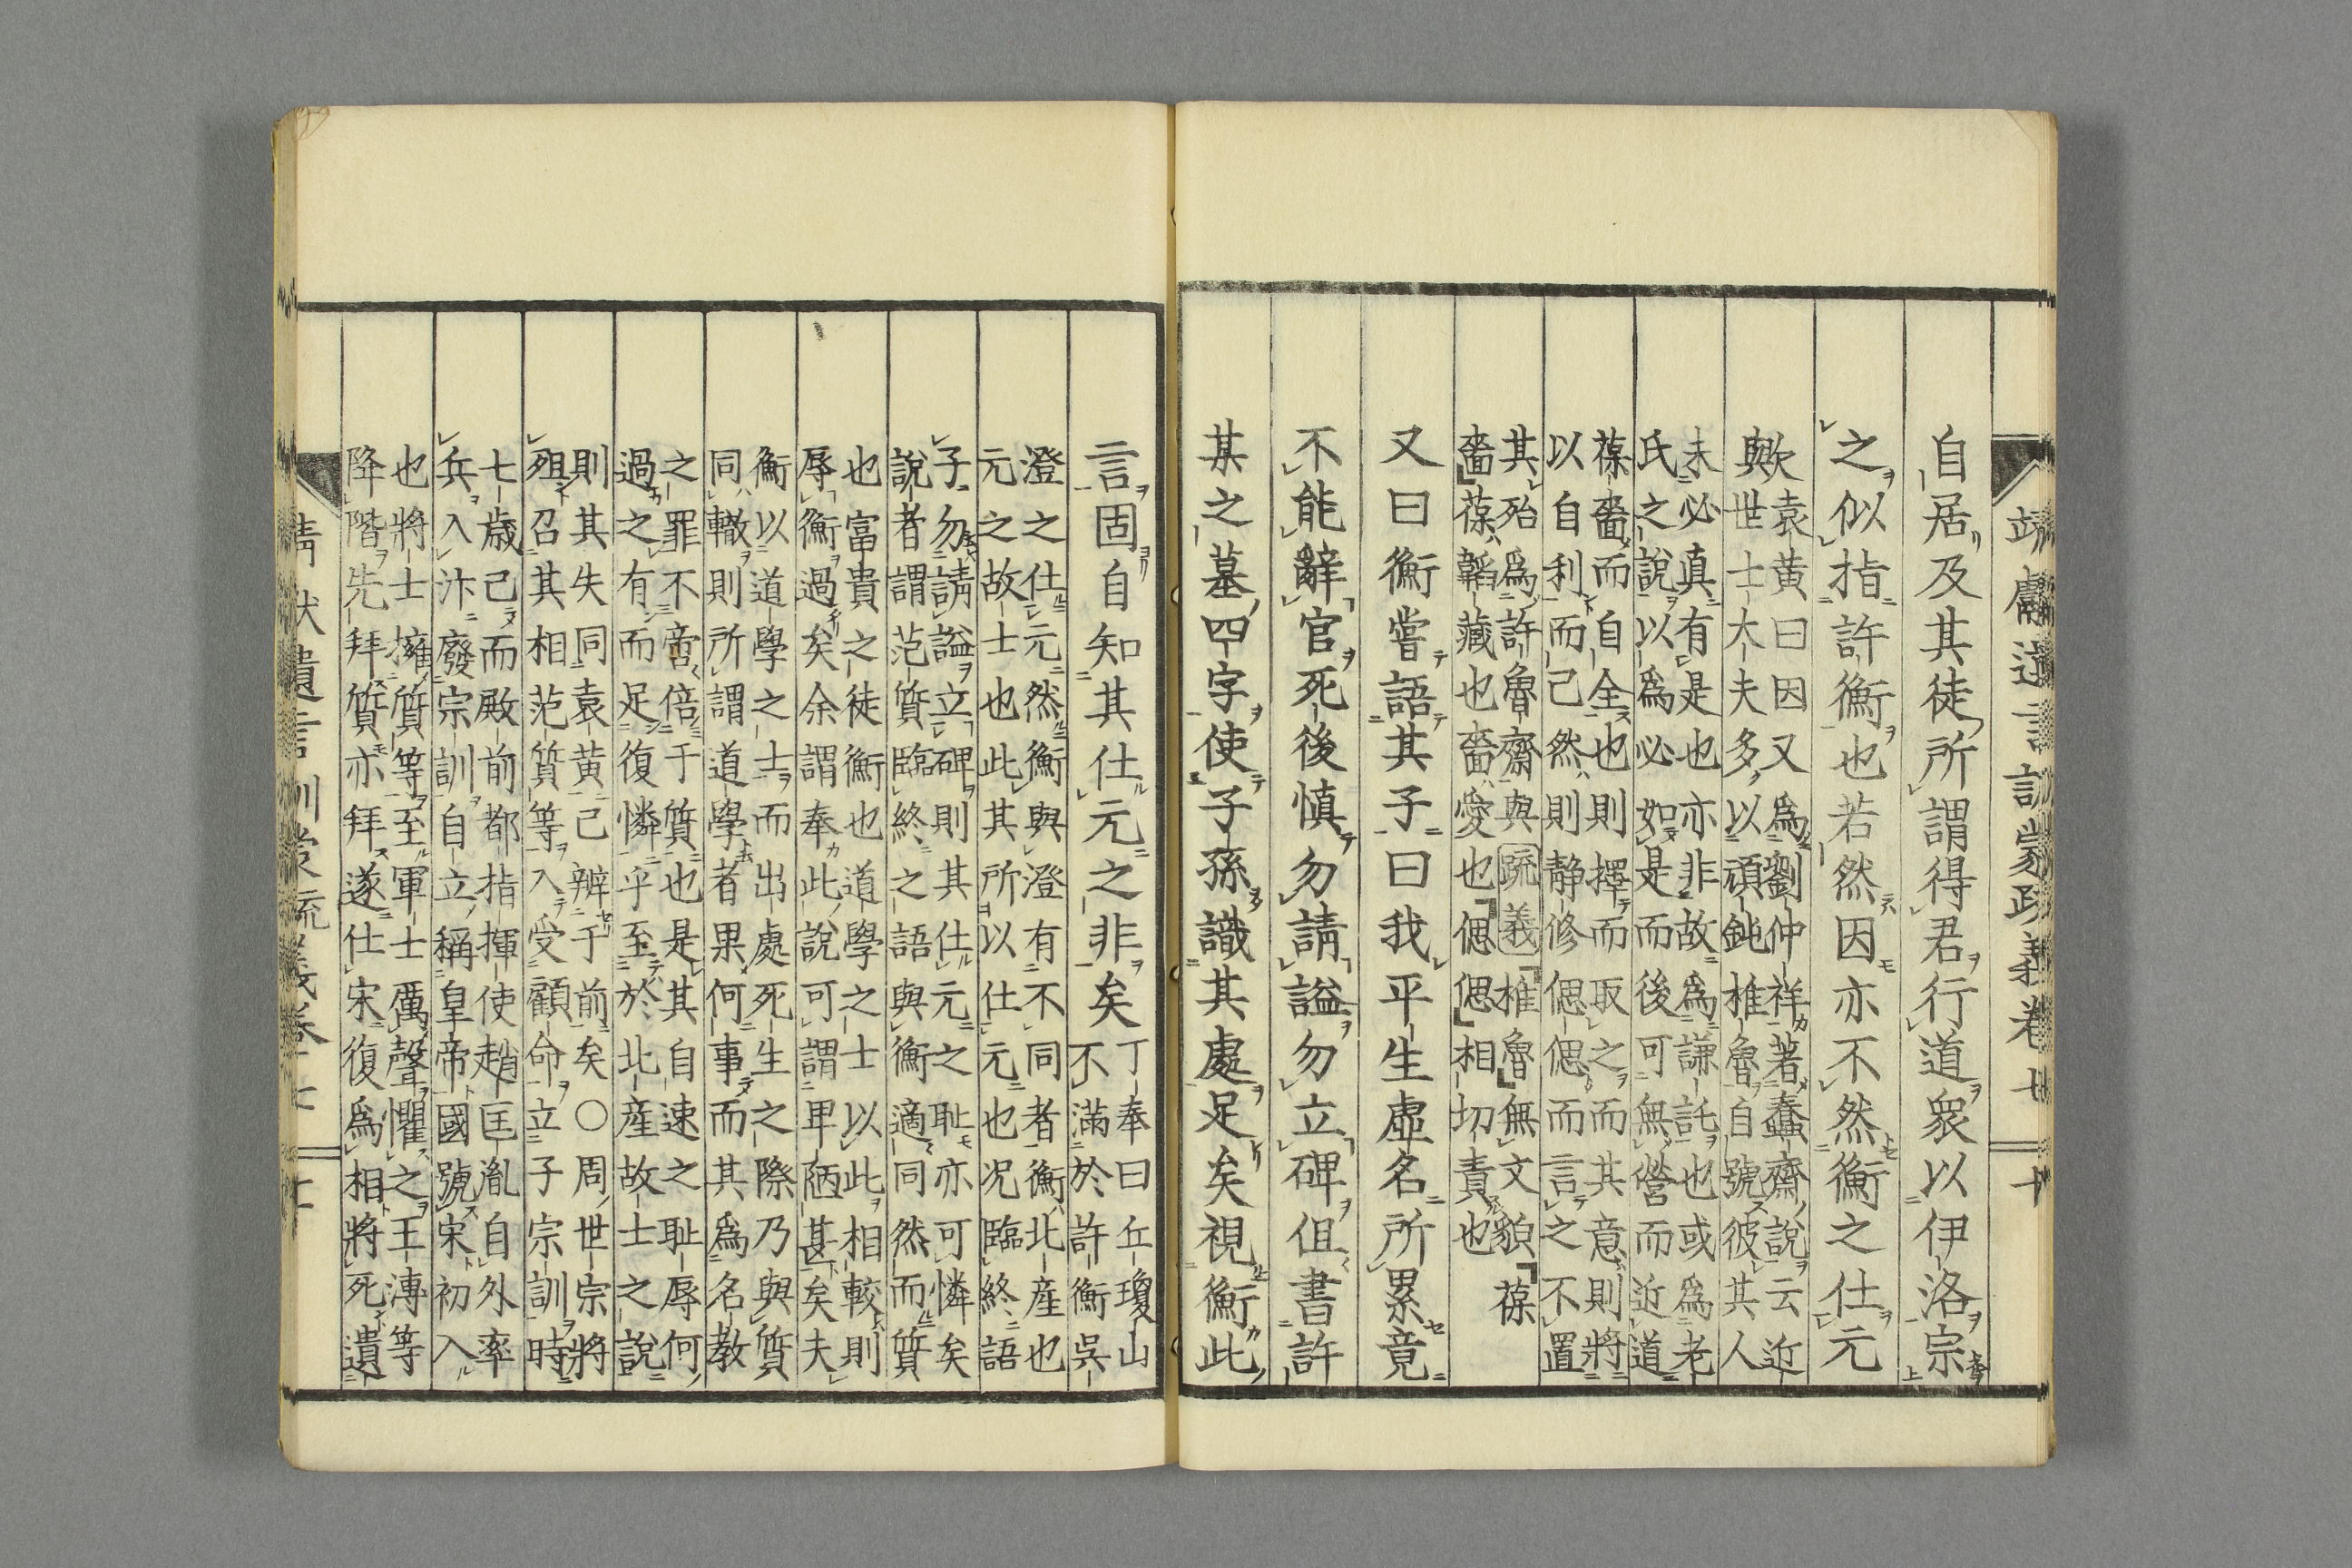 靖獻遺言訓蒙疏義卷七 十
自居及其徒所謂得君行道衆以伊洛宗
之似指許衡也若然因亦不然衡之仕元
歟袁黄曰因又爲劉仲祥著蠢齋說云近
世士大夫多以頑鈍椎魯自號彼其人
未必真有是也亦非故爲謙託也或爲老
氏之說以爲必如是而後可無營而近道
葆嗇而自全也則擇而取之而其意則將
以自利而已然則静修偲偲而言之不置
其殆爲許魯齋與疏義椎魯無文貌葆
嗇葆韜藏也嗇愛也偲偲相切責也
又曰衡嘗語其子曰我平生虛名所累竟
不能辭官死後慎勿請謚勿立碑但書許
某之墓四字使子孫識其處足矣視衡此
言固自知其仕元之非矣丁奉曰丘瓊山
不滿於許衡吳
澄之仕元然衡與澄有不同者衡北産也
元之故士也此其所以仕元也况臨終語
子勿請謚立碑則其仕元之耻亦可憐矣
說者謂范質臨終之語與衡適同然而質
也富貴之徒衡也道學之士以此相較則
辱衡過矣余謂奉此說可謂卑陋甚矣夫
衡以道學之士而出處死生之際乃與質
同轍則所謂道學者果何事而其爲名教
之罪不啻倍于質也是其自速之耻辱何
過之有而足復憐乎至於北産故士之說
則其失同袁黄已辨于前矣○周世宗將
殂召其相范質等入受顧命立子宗訓時
七歳已而殿前都指揮使趙匡胤自外率
兵入汴廢宗訓自立稱皇帝國號宋初入
也將士擁質等至軍士厲聲懼之王溥等
降階先拜質亦拜遂仕宋復爲相將死遺
靖獻遺言訓蒙疏義卷七 十一